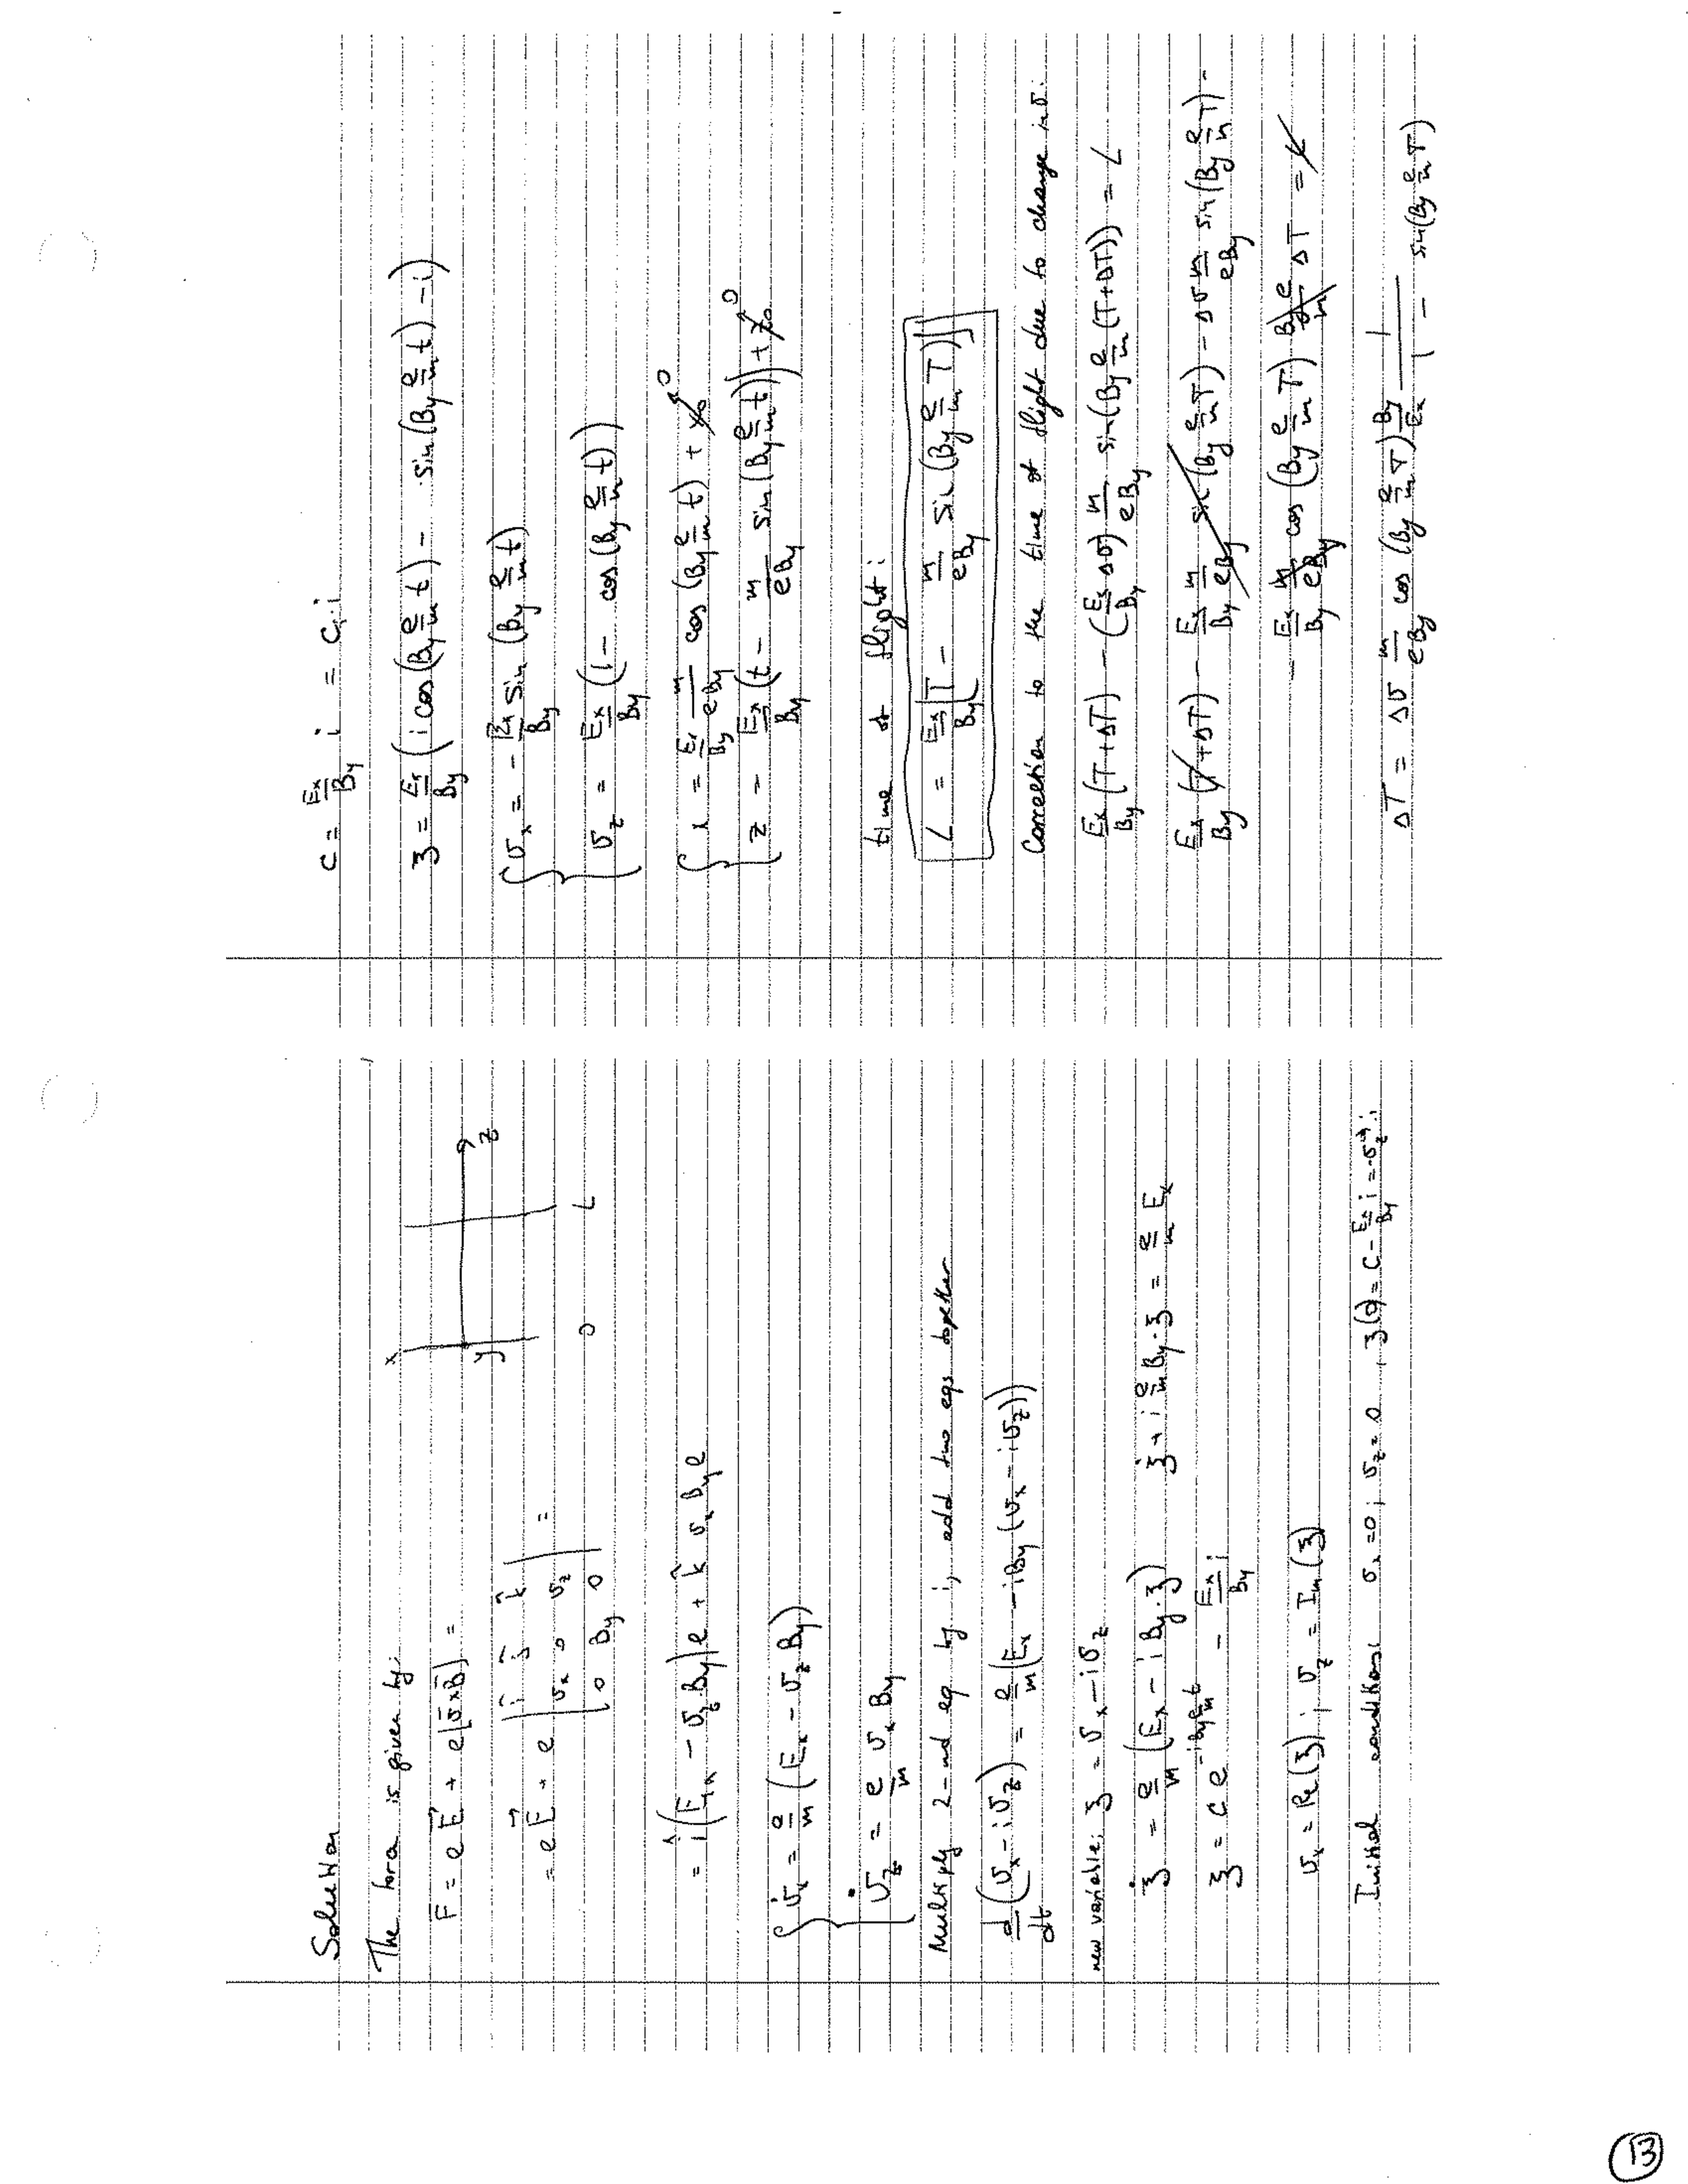 Solution
The force is given by:
x
y
z
0 L
F̄ = e Ē + e[v̄×B̄] =
= e E⃗ + e | î ĵ k̂ |
| vx 0 vz | =
| 0 By 0 |
= î (Ex − vz By) e + k̂ vx By e
{ v̇x = e/m (Ex − vz By)
v̇z = e/m vx By
Multiply 2-nd eq by i, add two eqs together
d/dt (vx − i vz) = e/m (Ex − i By (vx − i vz))
new variable: ʒ = vx − i vz
ʒ̇ = e/m (Ex − i By·ʒ) ʒ̇ + i e/m By·ʒ = e/m Ex
ʒ = c e^(−i By e/m t) − Ex/By i
vx = Re(ʒ) ; vz = Im(ʒ)
Initial conditions: vx = 0 ; vz = 0 , ʒ(0) = C − Ex/By i = −vz i
c = Ex/By i = c₁ i
ʒ = Ex/By (i cos(By e/m t) − sin(By e/m t) − i)
{ vx = − Ex/By sin(By e/m t)
vz = Ex/By (1 − cos(By e/m t))
{ x = Ex/By m/eBy cos(By e/m t) + x0 → 0
z = Ex/By (t − m/eBy sin(By e/m t)) + z0 → 0
time of flight:
L = Ex/By [T − m/eBy sin(By e/m T)]
Correction to the time of flight due to change in v:
Ex/By (T + ΔT) − (Ex/By Δv) m/eBy sin(By e/m (T + ΔT)) = L
Ex/By (T + ΔT) − Ex/By m/eBy sin(By e/m T) − Δv m/eBy sin(By e/m T) −
− Ex/By m/eBy cos(By e/m T) By e/m ΔT = L
ΔT = Δv m/eBy cos(By e/m T) By/Ex 1/1 − sin(By e/m T)
13